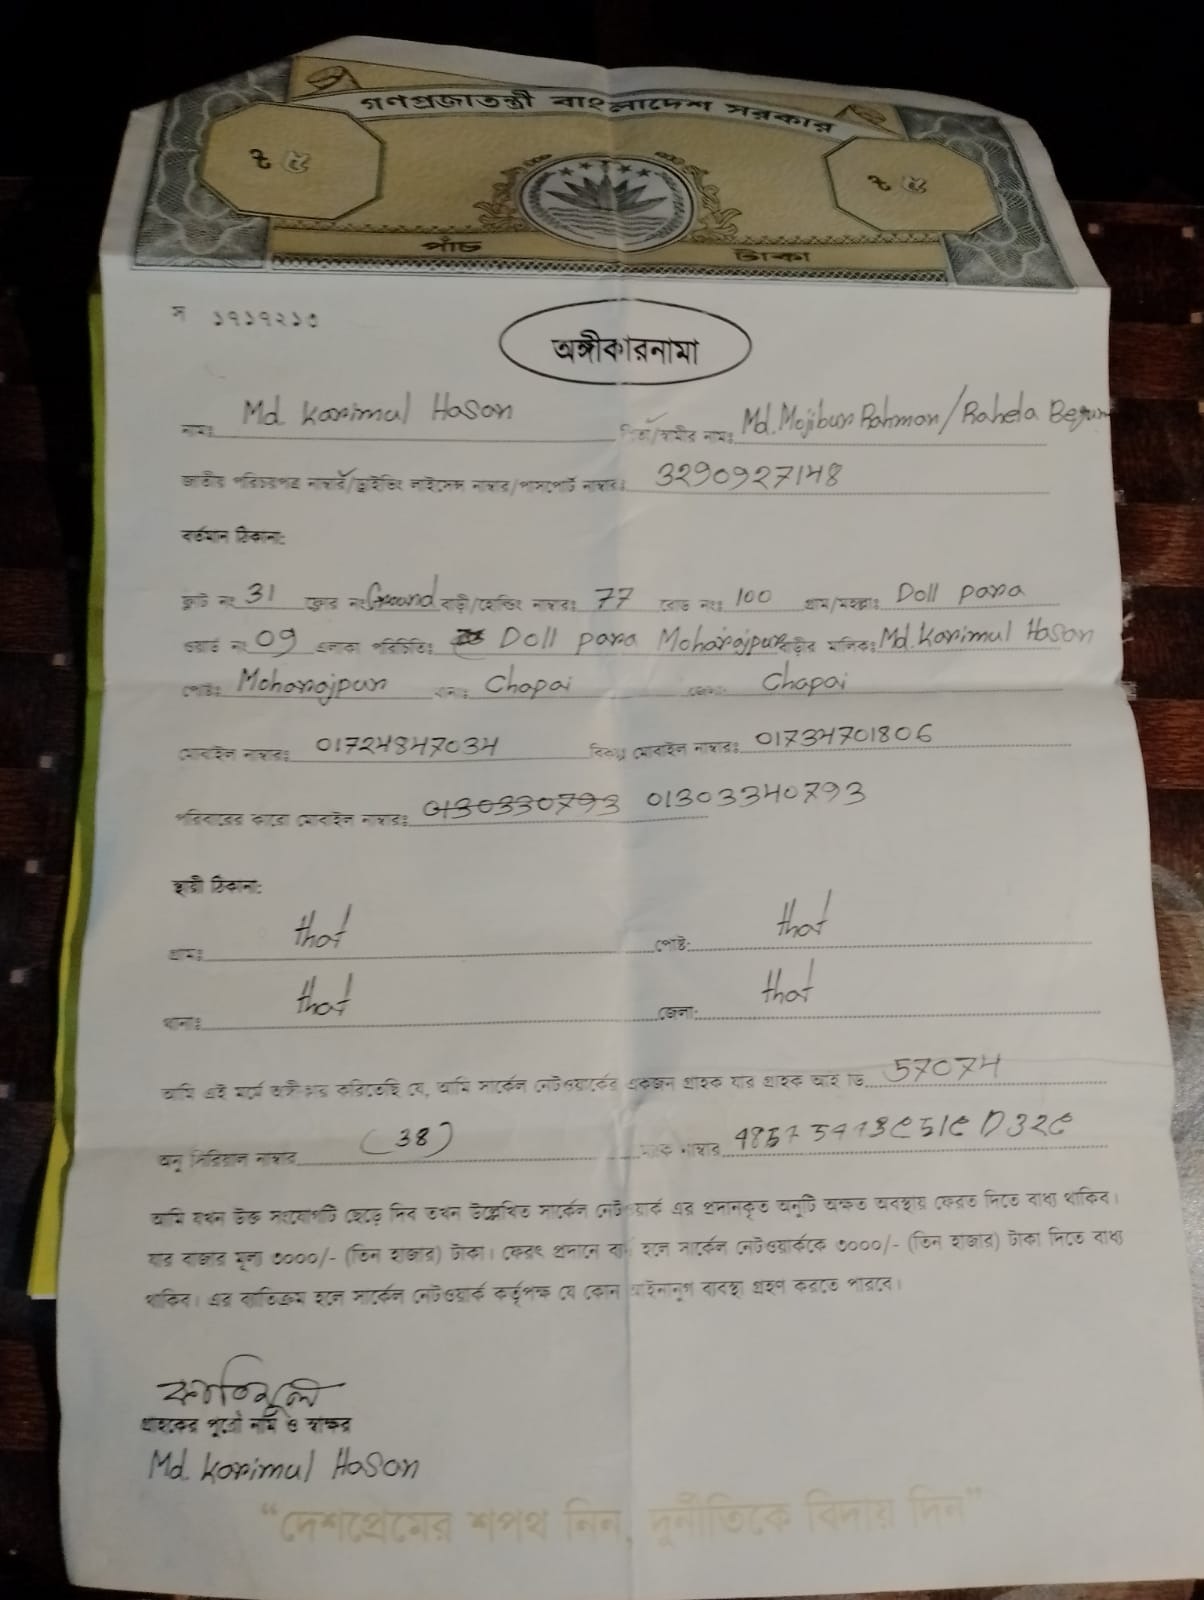 গণপ্রজাতন্ত্রী বাংলাদেশ সরকার
৳ ৫ ৳ ৫
পাঁচ টাকা
স ১৭১৭২১৩
অঙ্গীকারনামা
নামঃ Md. Karimul Hasan পিতা/স্বামীর নামঃ Md. Mojibur Rahman/Rahela Begum
জাতীয় পরিচয়পত্র নাম্বার/ড্রাইভিং লাইসেন্স নাম্বার/পাসপোর্ট নাম্বারঃ 3290927148
বর্তমান ঠিকানা:
ফ্লাট নং 31 ফ্লোর নং Ground বাড়ী/হোল্ডিং নাম্বারঃ 77 রোড নংঃ 100 গ্রাম/মহল্লাঃ Doll para
ওয়ার্ড নং 09 এলাকা পরিচিতিঃ Doll para Moharajpur বাড়ীর মালিকঃ Md. Karimul Hasan
পোষ্টঃ Moharajpur থানাঃ Chapai জেলাঃ Chapai
মোবাইল নাম্বারঃ 01724847034 বিকল্প মোবাইল নাম্বারঃ 01734701806
পরিবারের কারো মোবাইল নাম্বারঃ 0130330793 01303340793
স্থায়ী ঠিকানা:
গ্রামঃ that পোষ্ট: that
থানাঃ that জেলা: that
আমি এই মর্মে অঙ্গীকার করিতেছি যে, আমি সার্কেল নেটওয়ার্কের একজন গ্রাহক যার গ্রাহক আই ডি 57074
অনু সিরিয়াল নাম্বার (38) ম্যাক নাম্বার
আমি যখন উক্ত সংযোগটি ছেড়ে দিব তখন উল্লেখিত সার্কেল নেটওয়ার্ক এর প্রদানকৃত অনুটি অক্ষত অবস্থায় ফেরত দিতে বাধ্য থাকিব।
যার বাজার মূল্য ৩০০০/- (তিন হাজার) টাকা। ফেরৎ প্রদানে ব্যর্থ হলে সার্কেল নেটওয়ার্ককে ৩০০০/- (তিন হাজার) টাকা দিতে বাধ্য
থাকিব। এর ব্যতিক্রম হলে সার্কেল নেটওয়ার্ক কর্তৃপক্ষ যে কোন আইনানুগ ব্যবস্থা গ্রহণ করতে পারবে।
গ্রাহকের পুরো নাম ও স্বাক্ষর
Md. Karimul Hasan
“দেশপ্রেমের শপথ নিন, দুর্নীতিকে বিদায় দিন”